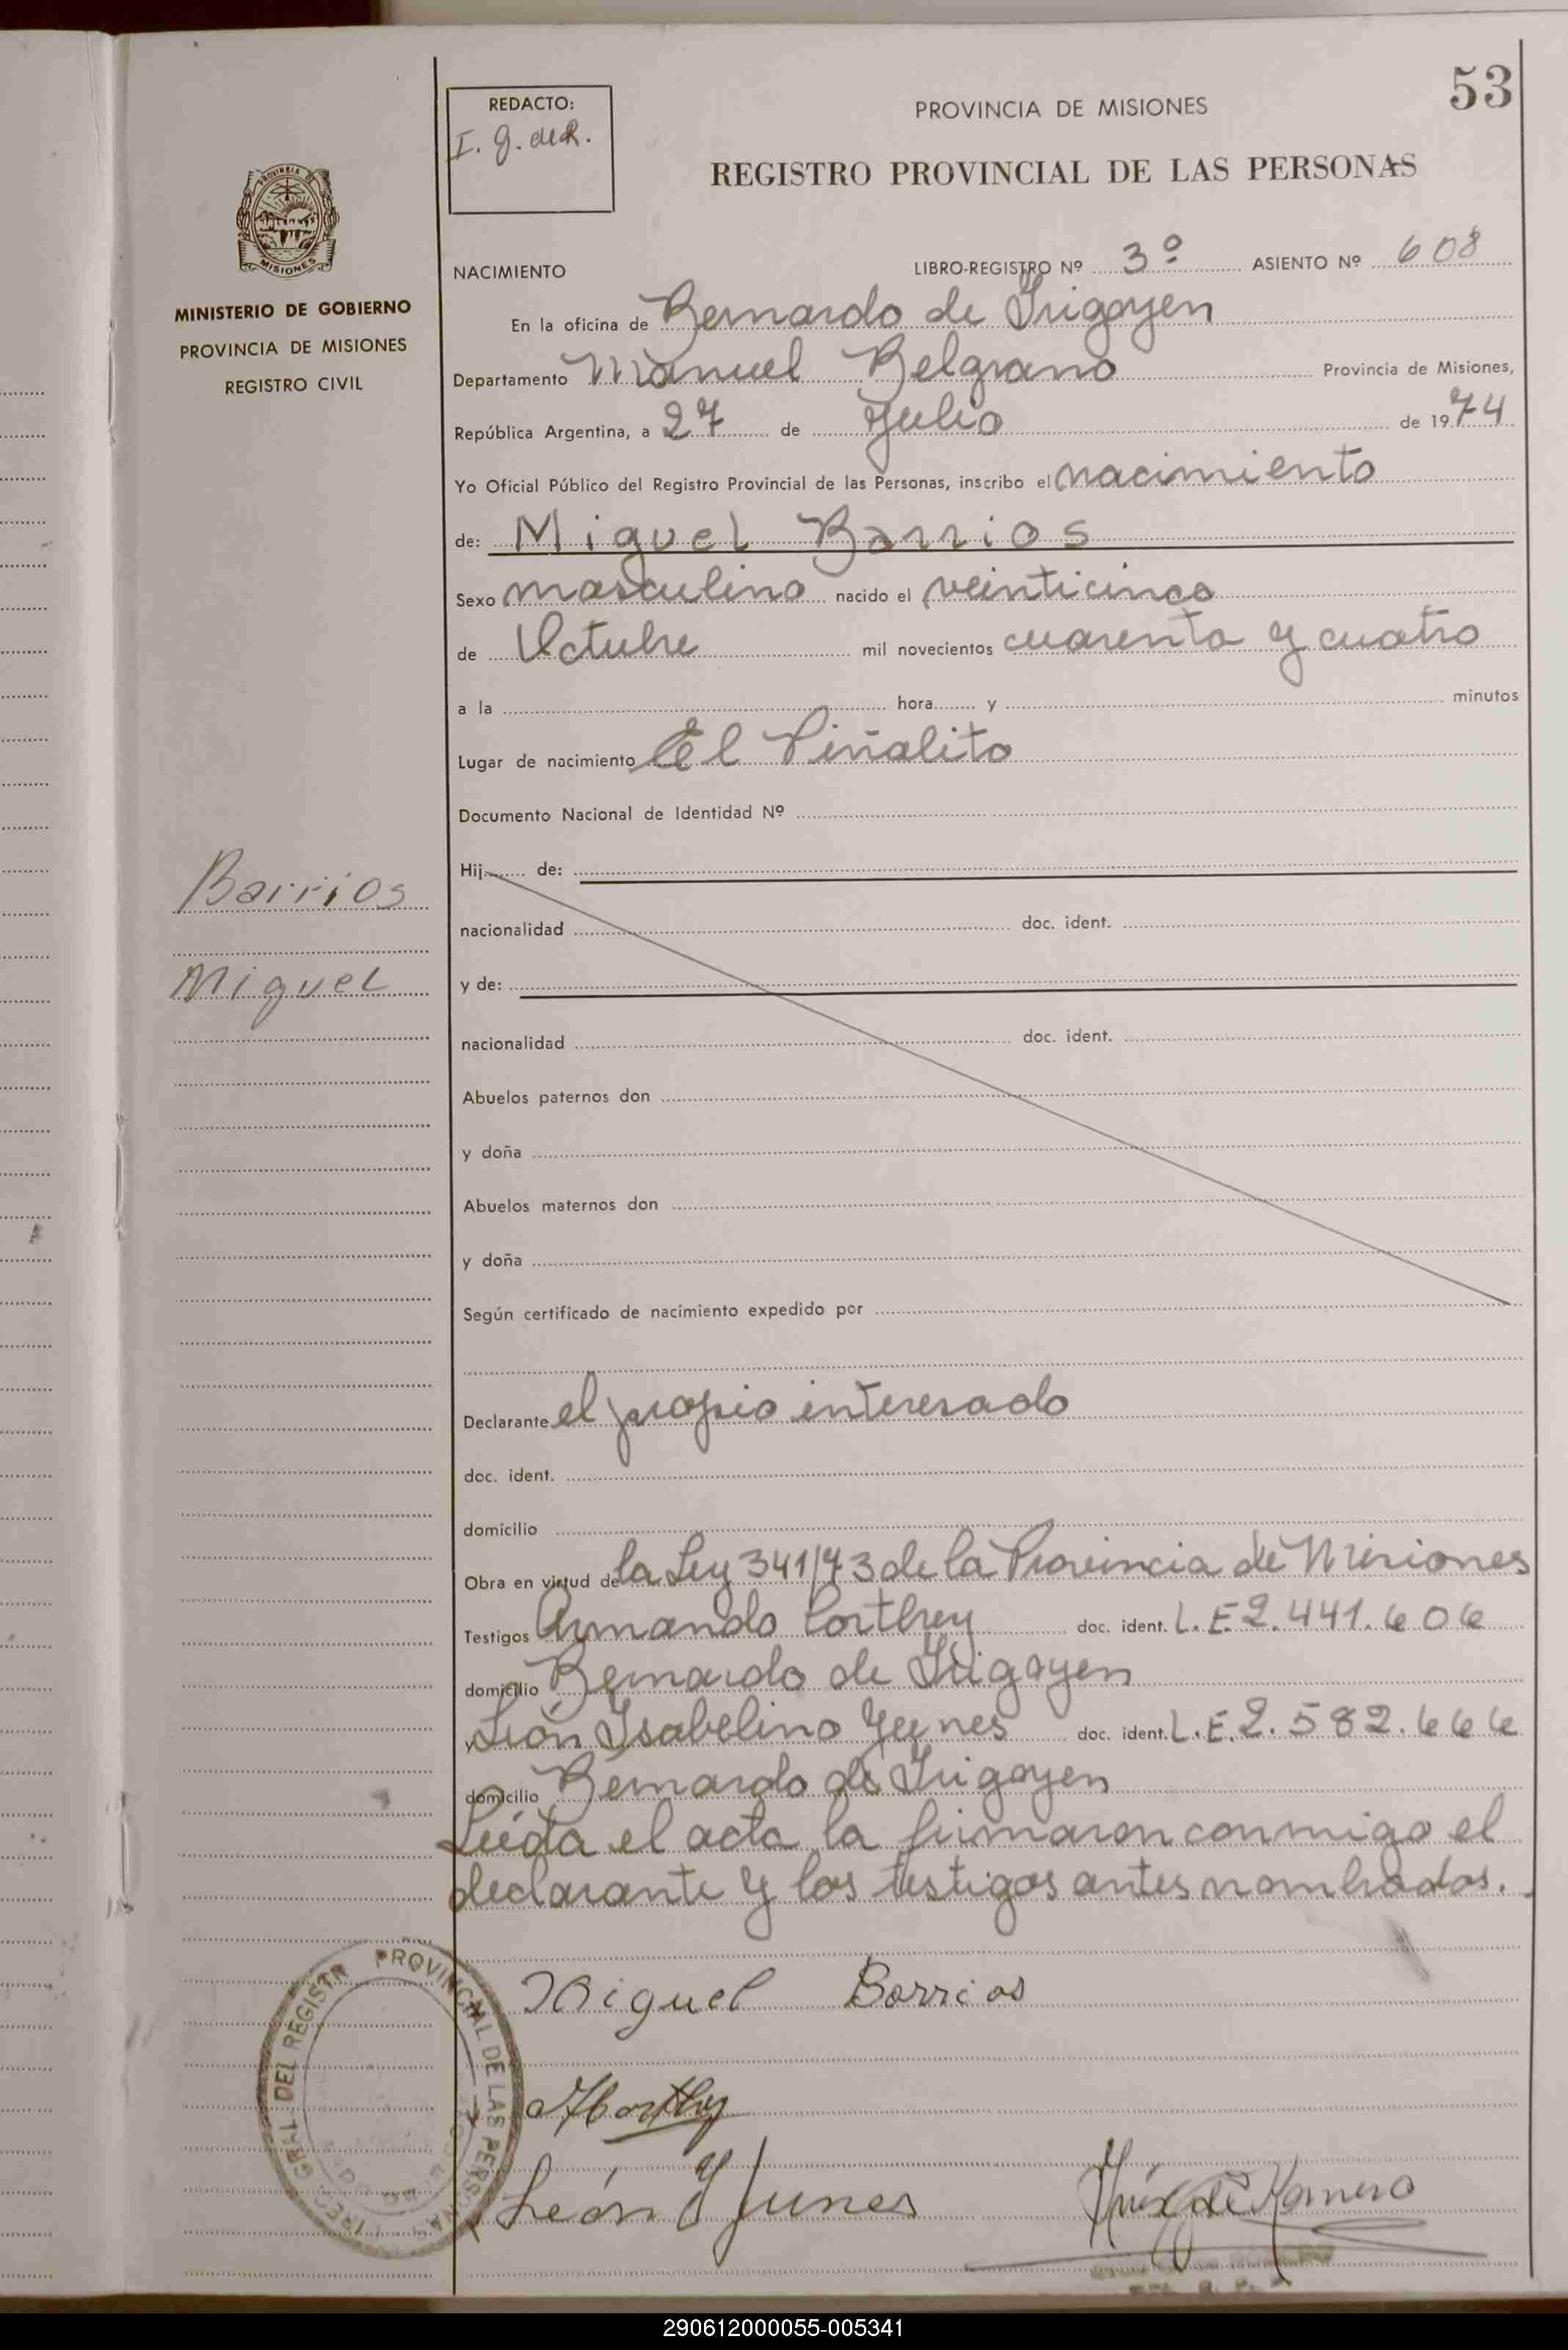 53
REDACTO:
I. g. de R.
PROVINCIA DE MISIONES
REGISTRO PROVINCIAL DE LAS PERSONAS
PROVINCIA DE
MISIONES
MINISTERIO DE GOBIERNO
PROVINCIA DE MISIONES
REGISTRO CIVIL
NACIMIENTO LIBRO-REGISTRO Nº 3º ASIENTO Nº 608
En la oficina de Bernardo de Irigoyen
Departamento Manuel Belgrano Provincia de Misiones,
República Argentina, a 27 de Julio de 1974
Yo Oficial Público del Registro Provincial de las Personas, inscribo el nacimiento
de: Miguel Barrios
Sexo masculino nacido el veinticinco
de Octubre mil novecientos cuarenta y cuatro
a la hora y minutos
Lugar de nacimiento El Piñalito
Documento Nacional de Identidad Nº
Hij de:
Barrios
nacionalidad doc. ident.
Miguel
y de:
nacionalidad doc. ident.
Abuelos paternos don
y doña
Abuelos maternos don
y doña
Según certificado de nacimiento expedido por
Declarante el propio interesado
doc. ident.
domicilio
Obra en virtud de la Ley 341/73 de la Provincia de Misiones
Testigos Armando Corthey doc. ident. L.E.2.441.606
domicilio Bernardo de Irigoyen
y León Isabelino Yunes doc. ident. L.E.2.582.666
domicilio Bernardo de Irigoyen
Leída el acta la firmaron conmigo el
declarante y los testigos antes nombrados.
Miguel Barrios
León Y Yunes
de Romero
GRAL DEL REGISTR PROVINCIAL DE LAS PERSONAS
290612000055-005341